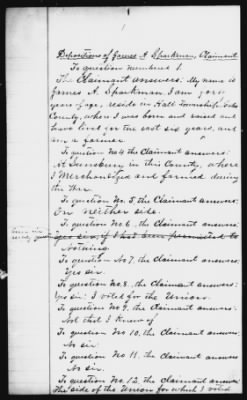 Depositions of James A Sparkman, Claimant
To question numbered 1.
The Claimant answers: My name is
James A. Sparkman. I am forty
years of age, reside in Hall Township
County, where I was born and raised and
have lived for the last six years, and
am a farmer.
To question No 4 the Claimant answers:
At in this County, where
I Merchandized and farmed during
the War.
To question No. 5, the Claimant answers:
On neither side.
To question No 6, the Claimant answers:
Yes sir, if I had been permitted to
Nothing
To question No 7, the Claimant answers:
Yes sir.
To question No. 8, the Claimant answers:
Yes sir: I voted for the Union.
To question No 9, the Claimant answers:
Not that I know of
To question No 10, the Claimant answers:
No sir.
To question No 11, the Claimant answers:
No sir.
To question No. 12, the Claimant answers
The side of the Union for which I voted